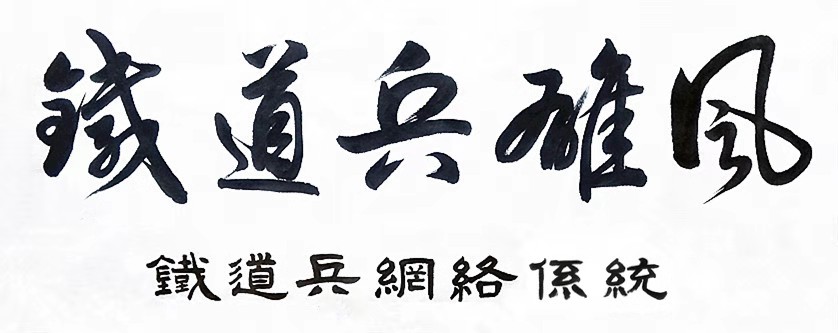 鐵道兵雄風
鐵道兵網絡係統